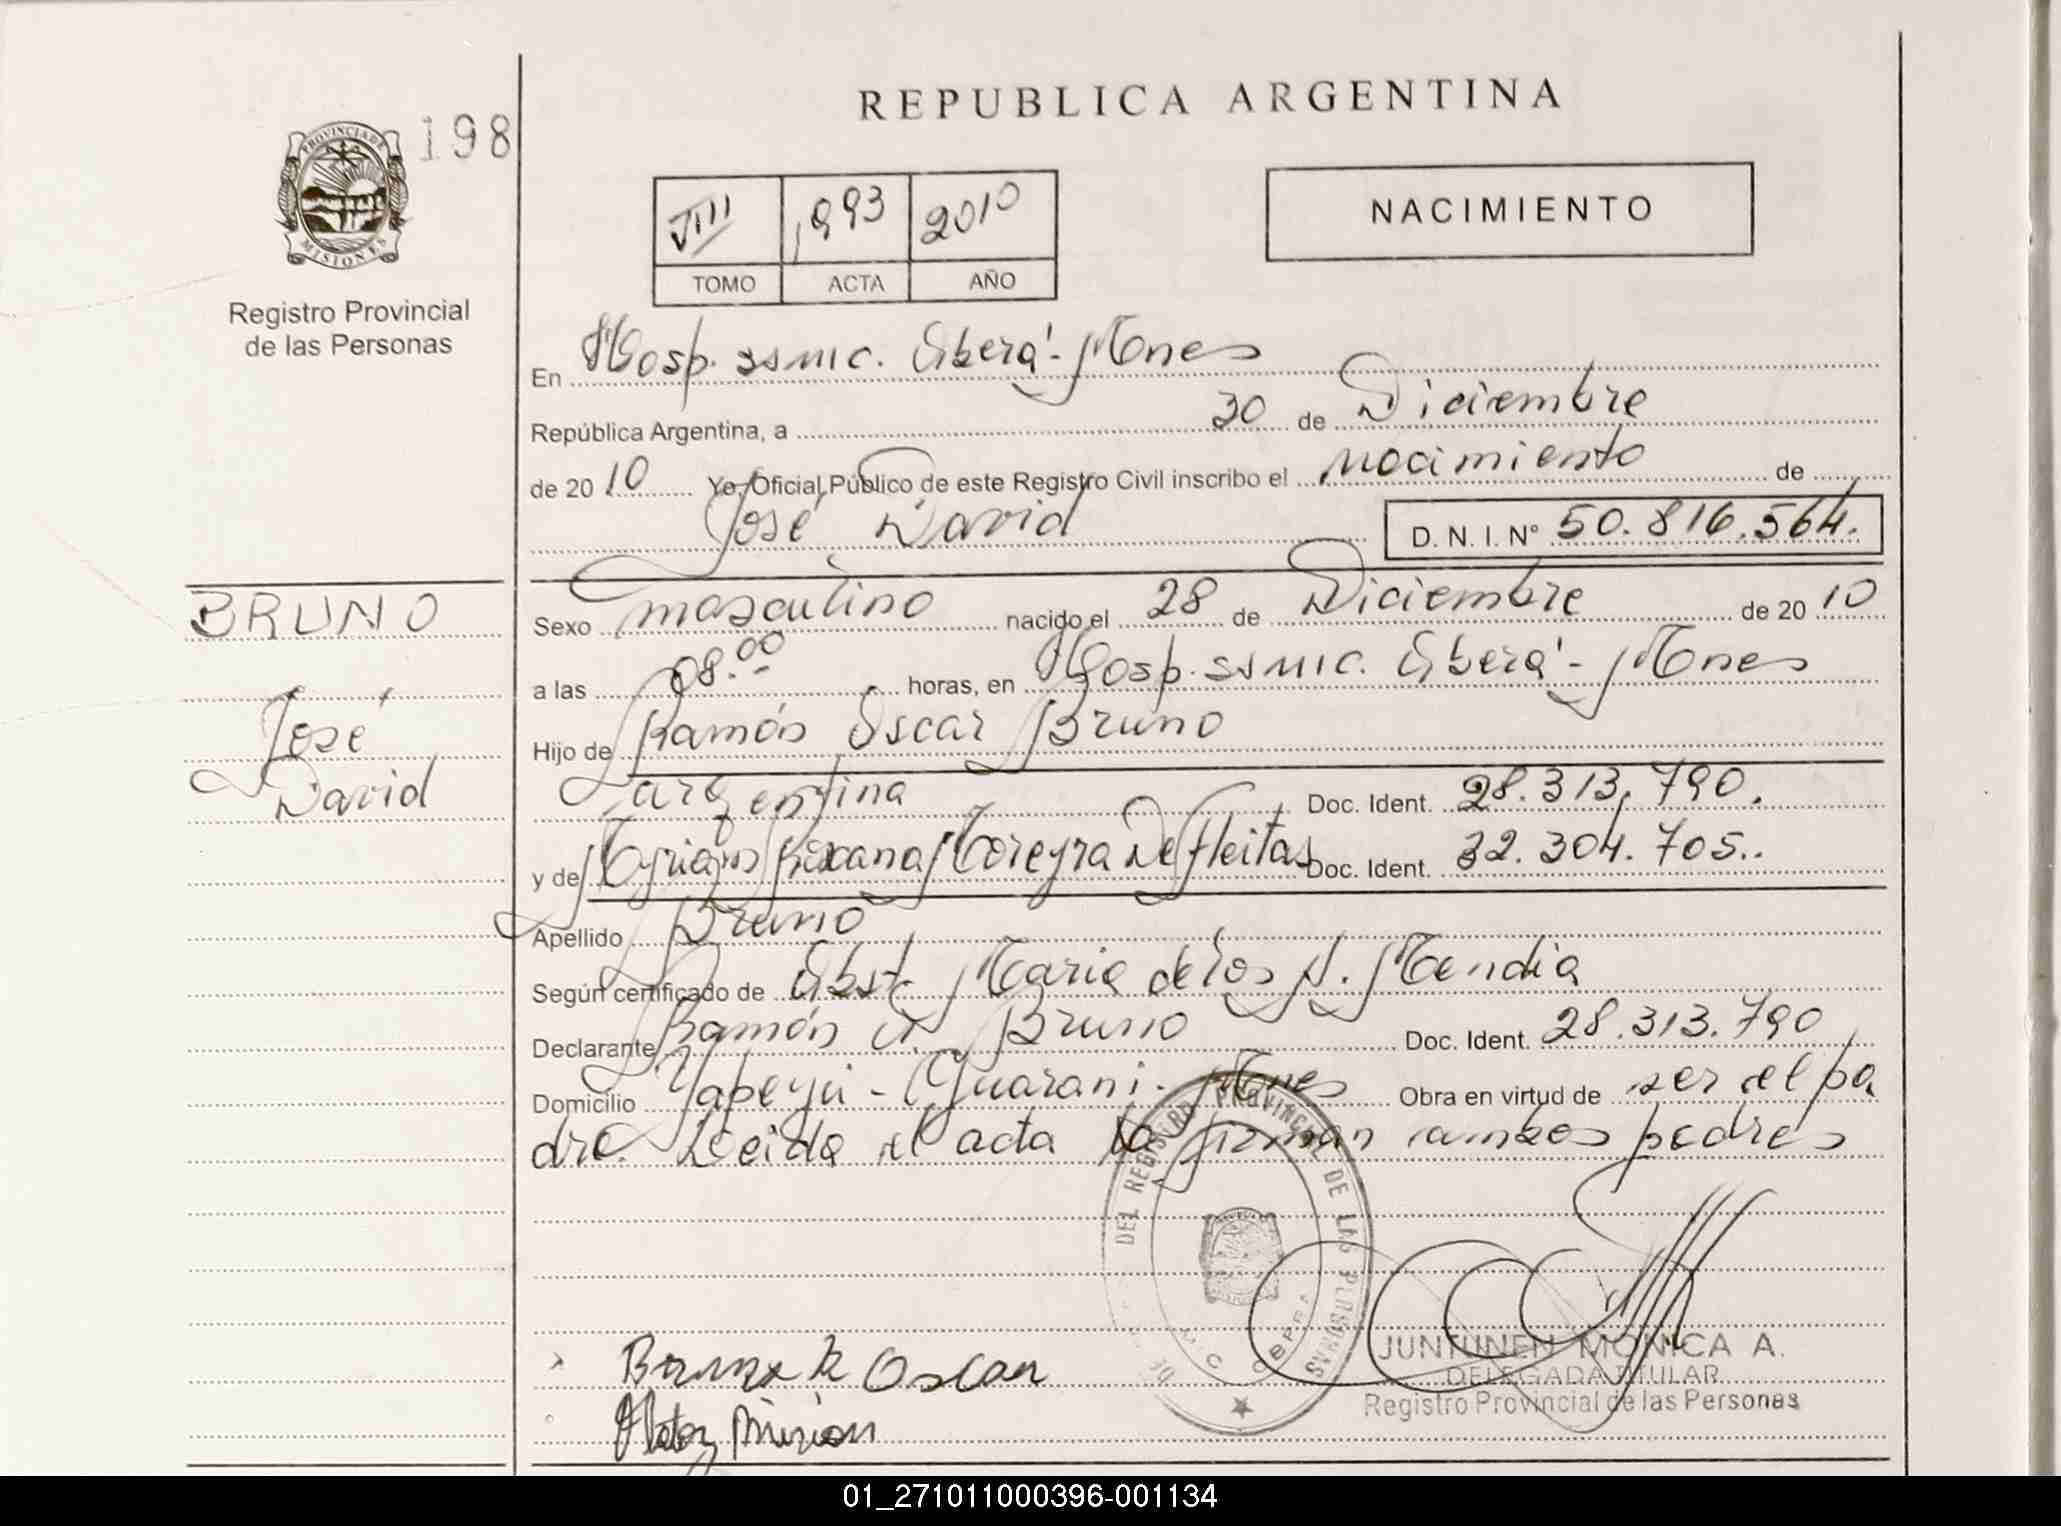 REPUBLICA ARGENTINA
198
PROVINCIA DE
MISIONES
Registro Provincial
de las Personas
VIII 1993 2010
TOMO ACTA AÑO
NACIMIENTO
En Hosp. ssmic. Oberá - Mnes
República Argentina, a 30 de Diciembre
de 2010 Yo, Oficial Público de este Registro Civil inscribo el nacimiento de
José David D. N. I. Nº 50.816.564.
BRUNO
José
David
Sexo masculino nacido el 28 de Diciembre de 2010
a las 08.00 horas, en Hosp. ssmic. Oberá - Mnes
Hijo de Ramón Oscar Bruno
argentina Doc. Ident. 28.313.790.
y de Moreyra De Fleitas Doc. Ident. 32.304.705..
Apellido Bruno
Según certificado de Obst. Maria de los A. Mendia
Declarante Ramón O. Bruno Doc. Ident. 28.313.790
Domicilio Yapeyú - Guarani - Mnes Obra en virtud de ser el pa
dre. Leida el acta la firman ambos padres
DEL REGISTRO PROVINCIAL DE LAS PERSONAS
OBERA
Oscar
JUNTUNEN MONICA A.
DELEGADA TITULAR
Registro Provincial de las Personas
01_271011000396-001134